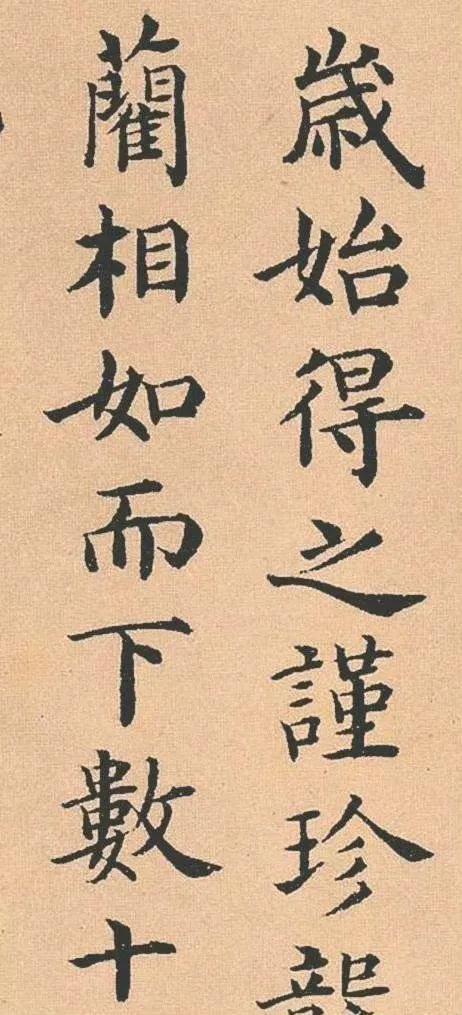 嵗始得之謹珍
藺相如而下數十